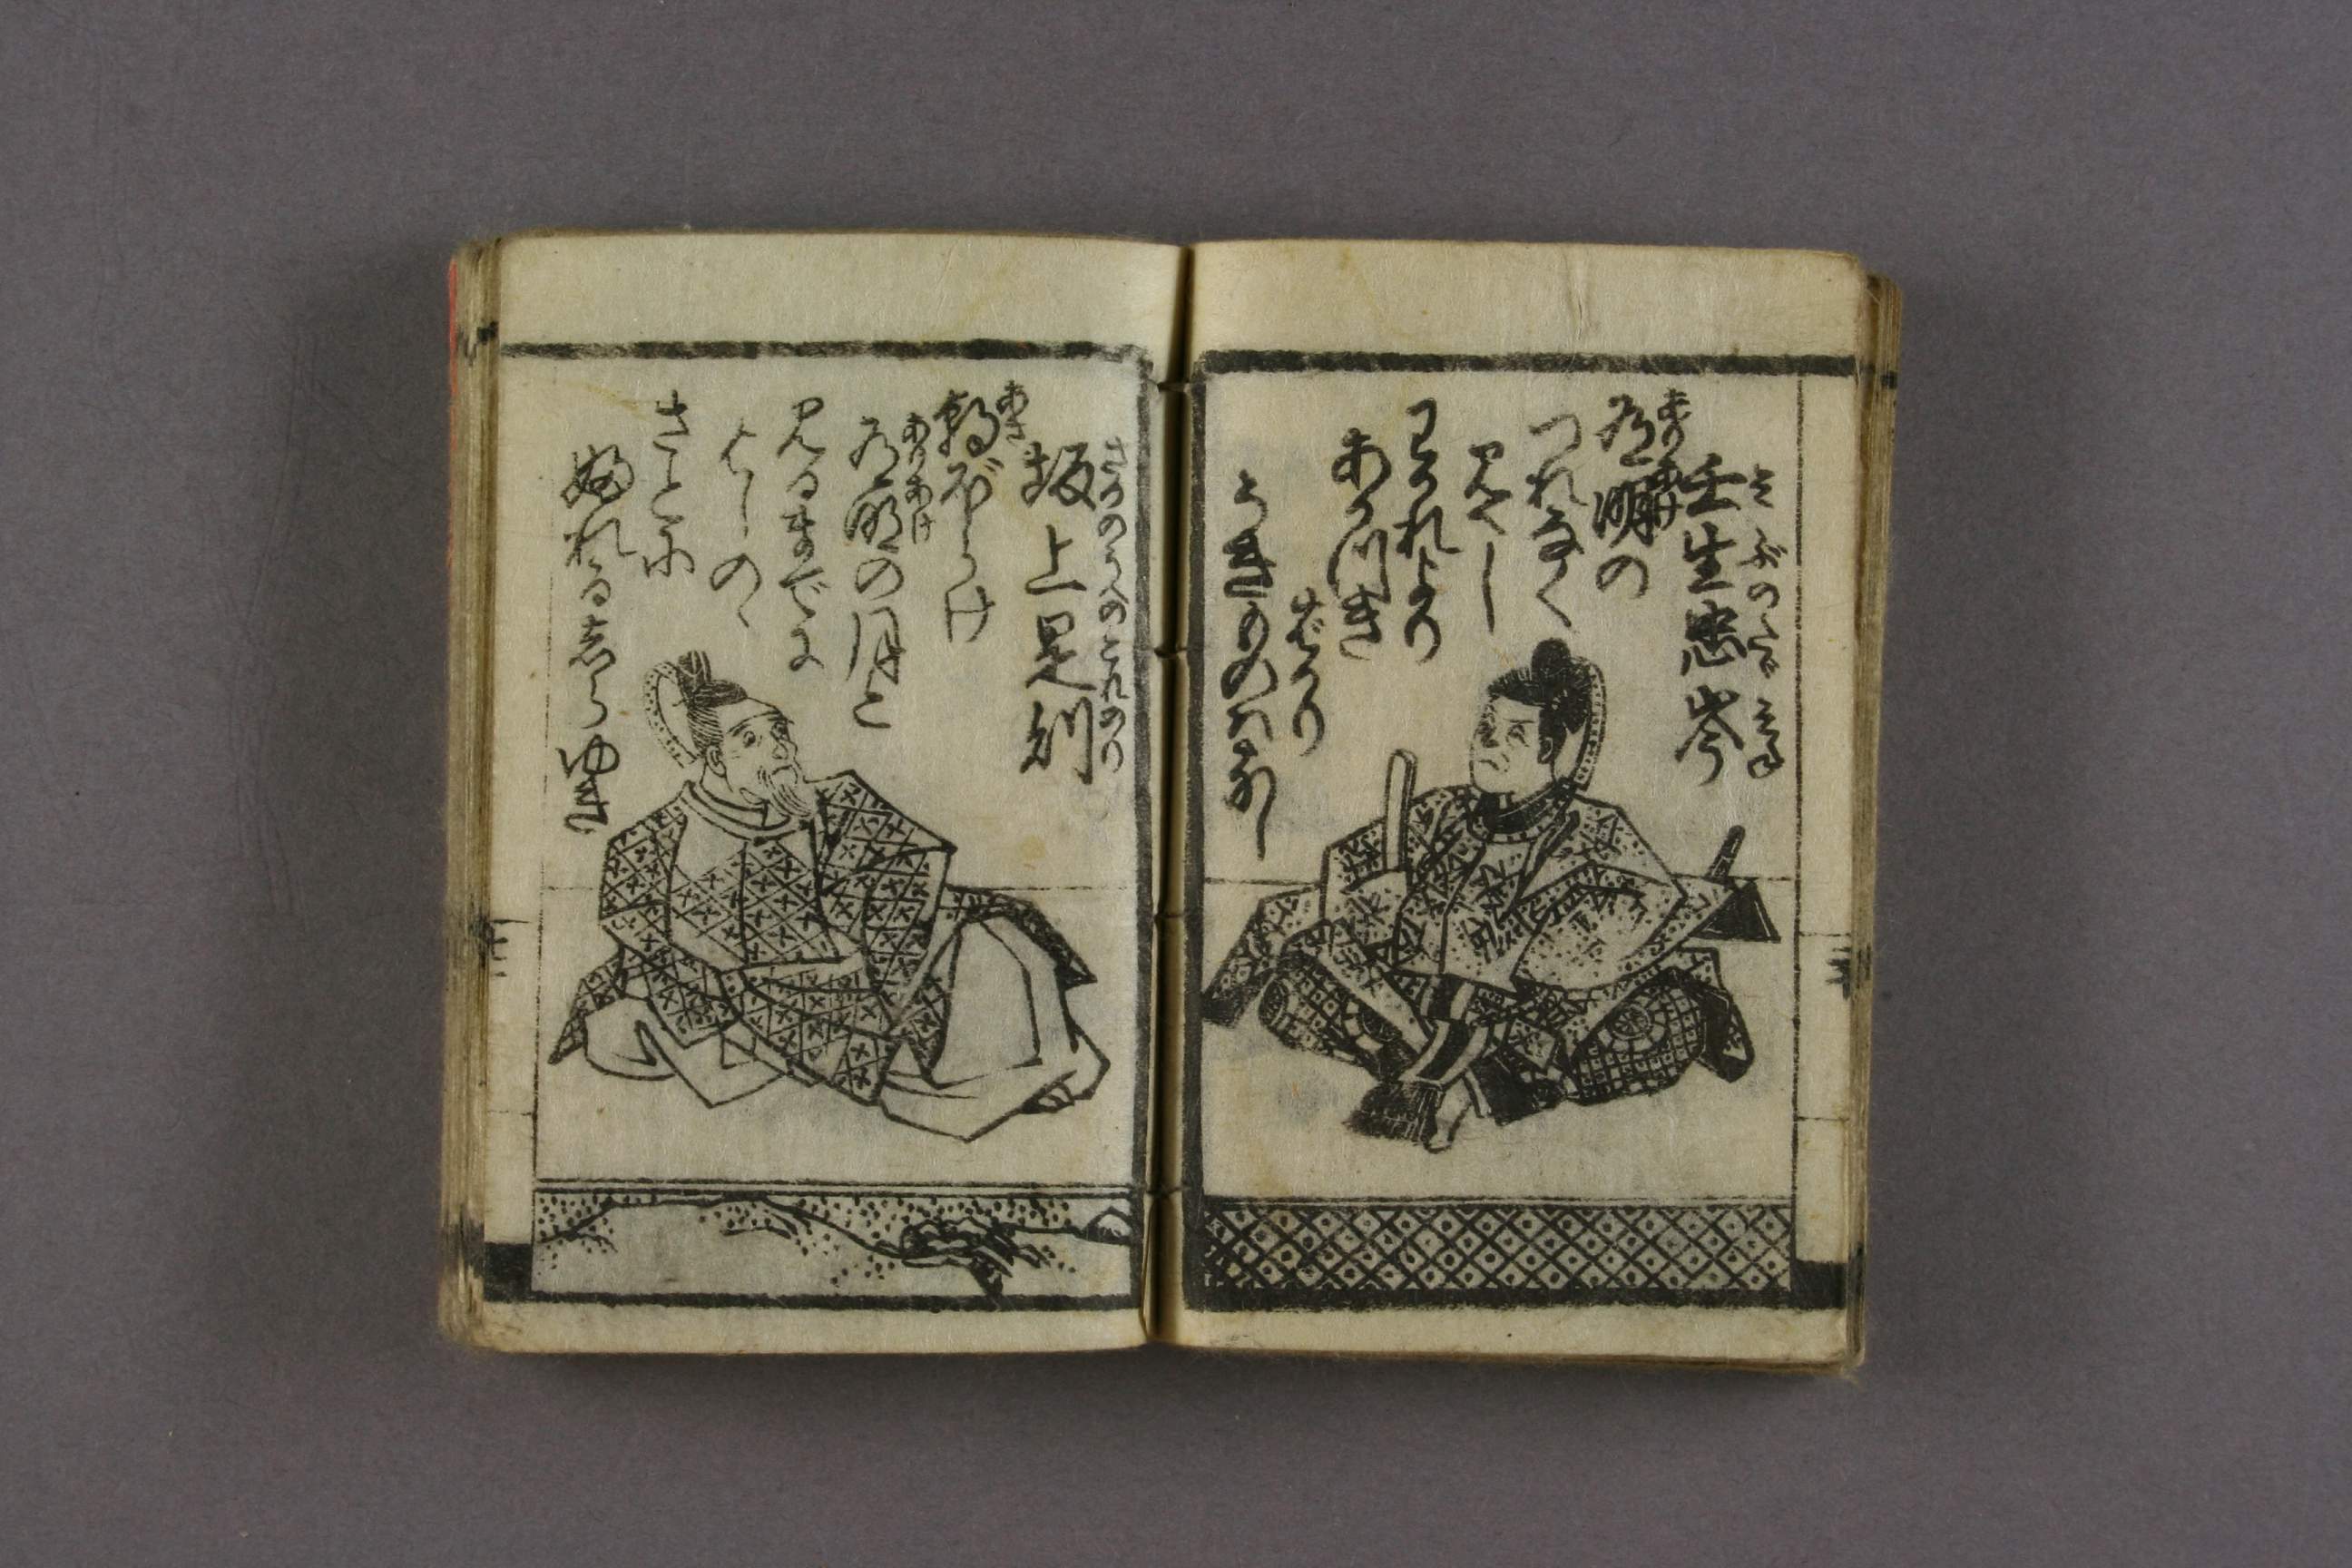 みぶのたゞみね
壬生忠岑
ありあけ
有明の
つれなく
見えし
わかれより
あかつき
ばかり
うきものはなし
さかのうへのこれのり
坂上是則
あさ
朝ぼらけ
ありあけ
有明の月と
見るまでに
よしのゝ
さとに
ふれるしらゆき